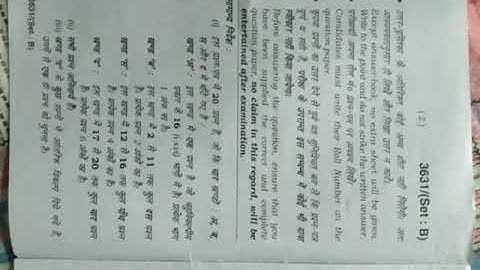 ( 2 )
3631/(Set : B)
उत्तर-पुस्तिका के अतिरिक्त कोई अन्य शीट नहीं मिलेगी। अतः
आवश्यकतानुसार ही लिखें और लिखा उत्तर न काटें।
Except answer-book, no extra sheet will be given.
Write to the point and do not strike the written answer.
परीक्षार्थी अपना रोल नं० प्रश्न-पत्र पर अवश्य लिखें।
Candidates must write their Roll Number on the
question paper.
कृपया प्रश्नों का उत्तर देने से पूर्व यह सुनिश्चित कर लें कि प्रश्न-पत्र
पूर्ण व सही है, परीक्षा के उपरान्त इस सम्बन्ध में कोई भी दावा
स्वीकार नहीं किया जायेगा।
Before answering the question, ensure that you
have been supplied the correct and complete
question paper, no claim in this regard, will be
entertained after examination.
सामान्य निर्देश :
(i) इस प्रश्न-पत्र में 20 प्रश्न हैं, जो कि चार खण्डों अ, ब,
स और द में बाँटे गए हैं :
खण्ड 'अ' : इस खण्ड में
प्रकार के 16 (i-xvi) भागों में है, प्रत्येक भाग
1 अंक का है।
खण्ड 'ब' : इस खण्ड में 2 से 11 तक कुल दस प्रश्न
हैं, प्रत्येक प्रश्न 2 अंकों का है।
खण्ड 'स' : इस खण्ड में 12 से 16 तक कुल पाँच प्रश्न
हैं, प्रत्येक प्रश्न अंकों का है।
खण्ड 'द' : इस खण्ड में 17 से 20 तक कुल चार प्रश्न
हैं, प्रत्येक प्रश्न अंकों का है।
(ii) सभी प्रश्न अनिवार्य हैं।
(iii) खण्ड 'द' के कुछ प्रश्नों में आंतरिक विकल्प दिये गये हैं,
में से एक ही प्रश्न को चुनना है।
3631/(Set : B)